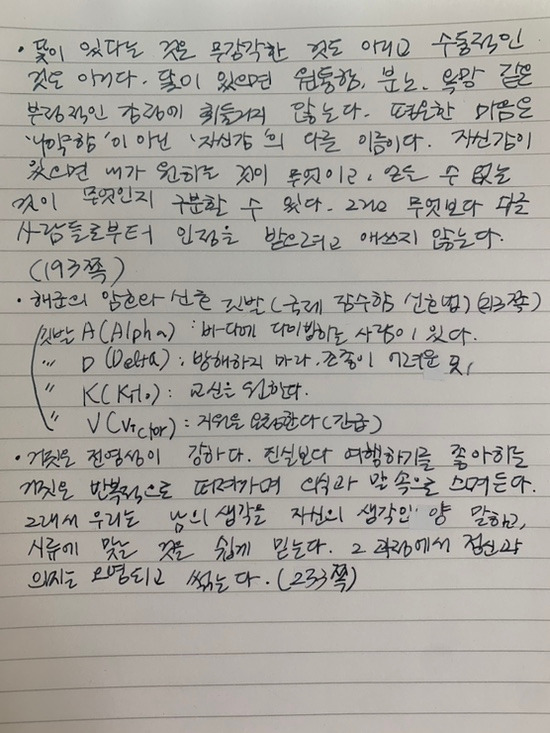 · 닻이 있다는 것은 무감각한 것도 아니고 수동적인
것도 아니다. 닻이 있으면 원통함, 분노, 욕망 같은
부정적인 감정에 휘둘리지 않는다. 평온한 마음은
'나약함'이 아닌 '자신감'의 다른 이름이다. 자신감이
있으면 내가 원하는 것이 무엇이고, 얻을 수 없는
것이 무엇인지 구분할 수 있다. 그리고 무엇보다 다른
사람들로부터 인정을 받으려고 애쓰지 않는다.
(193쪽)
· 해군의 암호와 신호 깃발 (국제 잠수함 신호법) (213쪽)
깃발 A (Alpha) : 바다에 다이빙하는 사람이 있다.
" D (Delta) : 방해하지 마라. 조종이 어려운 
" K (Kilo) : 교신을 원한다.
" V (Victor) : 지원을 요청한다 (긴급)
· 거짓은 전염성이 강하다. 진실보다 여행하기를 좋아하는
거짓은 반복적으로 퍼져가며 의식과 말 속으로 스며든다.
그래서 우리는 남의 생각을 자신의 생각인 양 말하고,
시류에 맞는 것을 쉽게 믿는다. 그 과정에서 정신과
의지는 오염되고 썩는다. (233쪽)